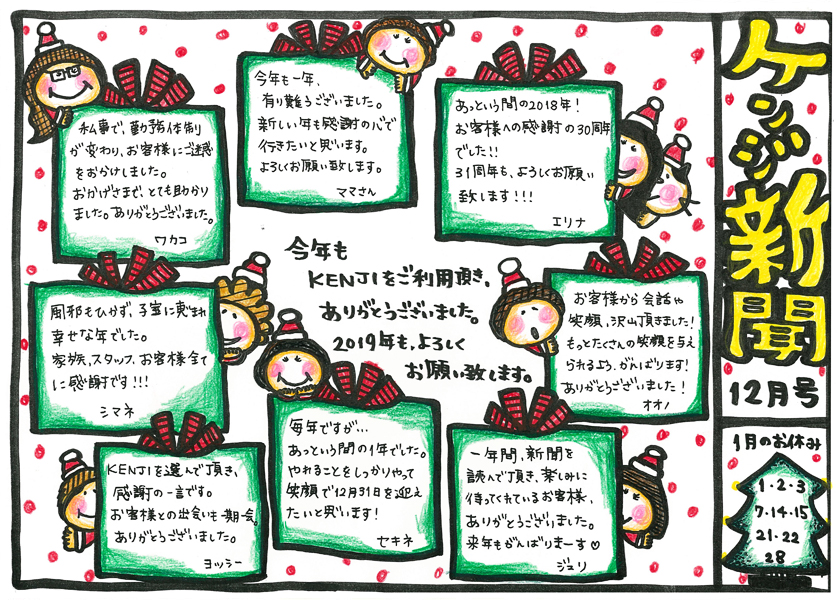 ケンジ新聞
12月号
1月のお休み
1・2・3
7・14・15
21・22
28
あっという間の2018年!
お客様への感謝の30周年
でした!!
31周年も、よろしくお願い
致します!!!
エリナ
今年も一年、
有り難うございました。
新しい年も感謝の心で
行きたいと思います。
よろしくお願い致します。
ママさん
私事で、勤務体制
が変わり、お客様にご迷惑
をおかけしました。
おかげさまで、とても助かり
ました。ありがとうございました。
ワカコ
今年も
KENJIをご利用頂き、
ありがとうございました。
2019年も、よろしく
お願い致します。
お客様から会話や
笑顔、沢山頂きました!
もっとたくさんの笑顔を与え
られるよう、がんばります!
ありがとうございました!
オオノ
風邪もひかず、子宝に恵まれ
幸せな年でした。
家族、スタッフ、お客様全て
に感謝です!!!
シマネ
毎年ですが…
あっという間の1年でした。
やれることをしっかりやって
笑顔で12月31日を迎え
たいと思います!
セキネ
一年間、新聞を
読んで頂き、楽しみに
待ってくれているお客様、
ありがとうございました。
来年もがんばりまーす♡
ジュリ
KENJIを選んで頂き、
感謝の一言です。
お客様との出会いも一期一会。
ありがとうございました。
ヨッシー